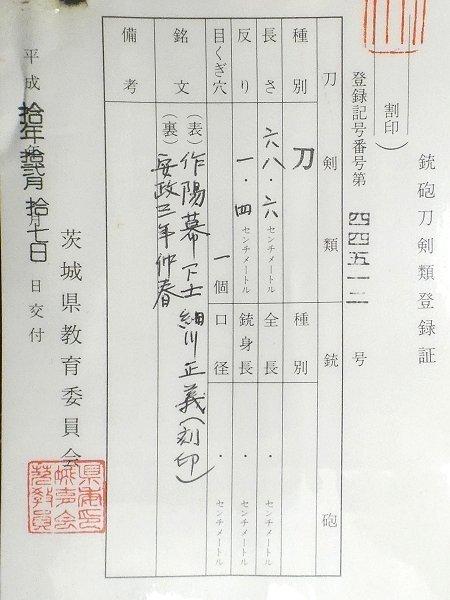 銃砲刀剣類登録証
割印
登録記号番号第 四四五一二 号
刀剣類 銃砲
種別 刀 種別
長さ 六八・六 センチメートル 全長 ・ センチメートル
反り 一・四 センチメートル 銃身長 ・ センチメートル
目くぎ穴 一個 口径 ・ センチメートル
銘文 (表) 作陽幕下士細川正義(刻印)
(裏) 安政三年仲春
備考
平成拾年拾弐月拾七日交付
茨城県教育委員会